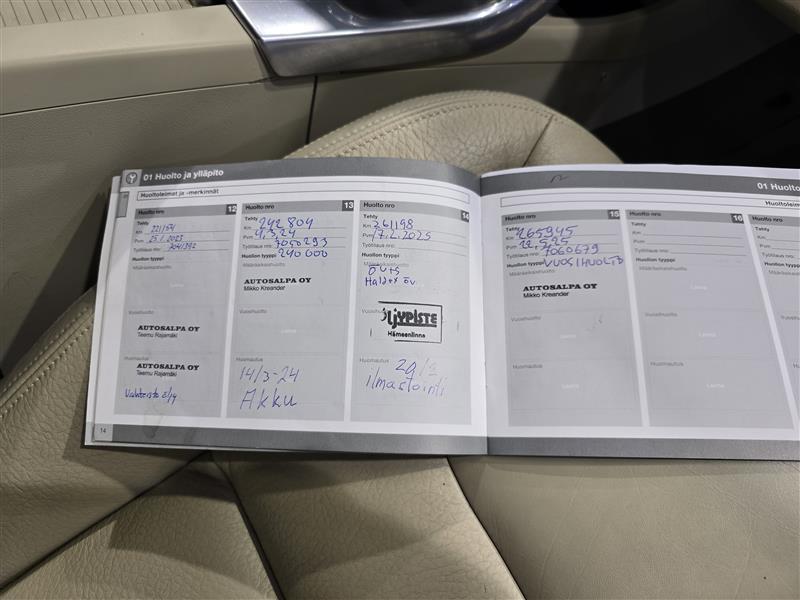 01 Huolto ja ylläpito
Huoltoleimat ja -merkinnät
Huolto nro 12
Tehty
Km 221154
Pvm 25.1.2023
Työtilaus nro:
Huollon tyyppi
Määräaikaishuolto
Leima
Vuosihuolto
AUTOSALPA OY
Teemu Rajamäki
Huomautus
AUTOSALPA OY
Teemu Rajamäki
14
Huolto nro 13
Tehty
Km 242 804
Pvm 4.3.24
Työtilaus nro: 7050293
Huollon tyyppi 240 000
Määräaikaishuolto
AUTOSALPA OY
Mikko Kreander
Vuosihuolto
Leima
Huomautus
14/3-24
Akku
Huolto nro 14
Tehty
Km 261198
Pvm 17.2.2025
Työtilaus nro:
Huollon tyyppi
Määräaikaishuolto
öv+s
Haldex öv
Vuosihuolto
ÖLJYPISTE
Hämeenlinna
Huomautus
ilmastointi
01 Huolto
Huoltoleim
Huolto nro 15
Tehty
Km 265945
Pvm 12.5.25
Työtilaus nro: 7060679
Huollon tyyppi VUOSIHUOLTO
Määräaikaishuolto
AUTOSALPA OY
Mikko Kreander
Vuosihuolto
Leima
Huomautus
Leima
Huolto nro 16
Tehty
Km
Pvm
Työtilaus nro:
Huollon tyyppi
Määräaikaishuolto
Leima
Vuosihuolto
Leima
Huomautus
Leima
Huolto nro
Tehty
Km
Pvm
Työtilaus nro:
Huollon tyyppi
Määräaikaish
Vuosihuolto
Huomautus